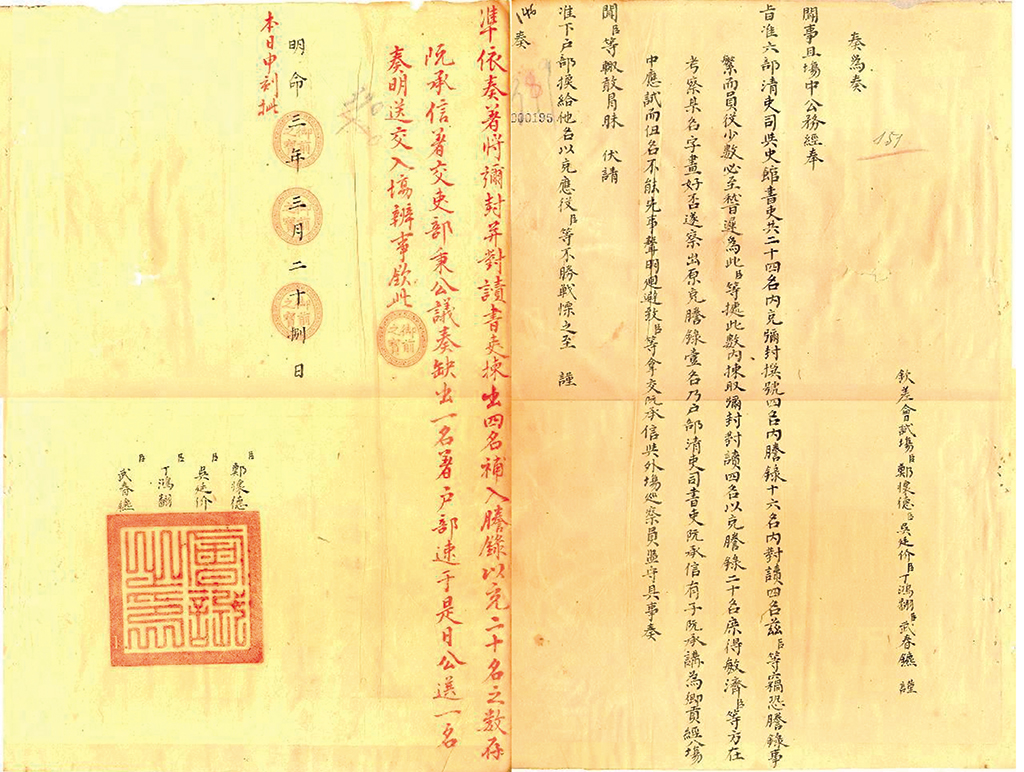 欽差會試場臣鄭懷德臣吳廷价臣丁鴻翻臣武春謹
奏為奏
聞事且場中公務經奉
旨准六部清吏司與史館書吏共二十四名內充彌封撰號四名內謄錄十六名內對讀四名茲臣等竊恐謄錄事
繁而員役少數必至稽遲為此臣等據此數內揀取彌封對讀四名以充謄錄二十名庶得敏濟臣等方在
考察某名字畫好否遂察出原充謄錄壹名乃戶部清吏司書吏阮承信有子阮承講為鄉貢經入場
中應試而伊名不能先事聲明迴避致臣等拿交阮承信與外場巡察員監守具事奏
聞臣等輒敢肩昧 伏請
准下戶部換給他名以充應役臣等不勝戰慄之至 謹
奏
146
151
000195
準依奏著將彌封并對讀書吏揀出四名補入謄錄以充二十名之數存
阮承信著交吏部秉公議奏缺出一名著戶部速于是日公送一名
奏明送交入場辦事欽此
御前之寶
明命三年三月二十捌日
本日申刻批
臣鄭懷德
臣吳廷价
臣丁鴻翻
臣武春
會試之印